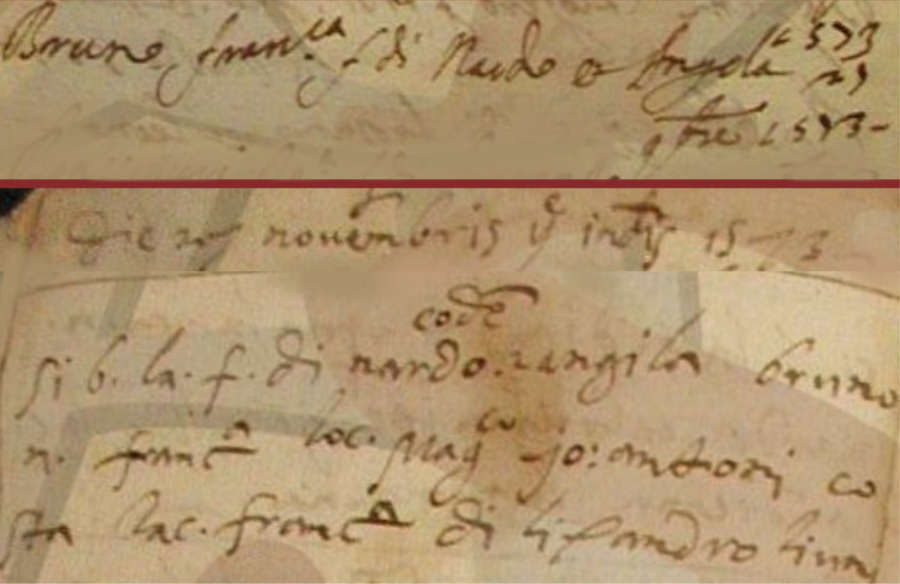 Bruno fran.ca f di Nardo e Angela 1573
9bre 1573-
Die novembris ind 1573
eode
si b. la. f. di nardo. angila bruno
n. franca loc. magco jo: antoni co
sta lac. franca di lisandro